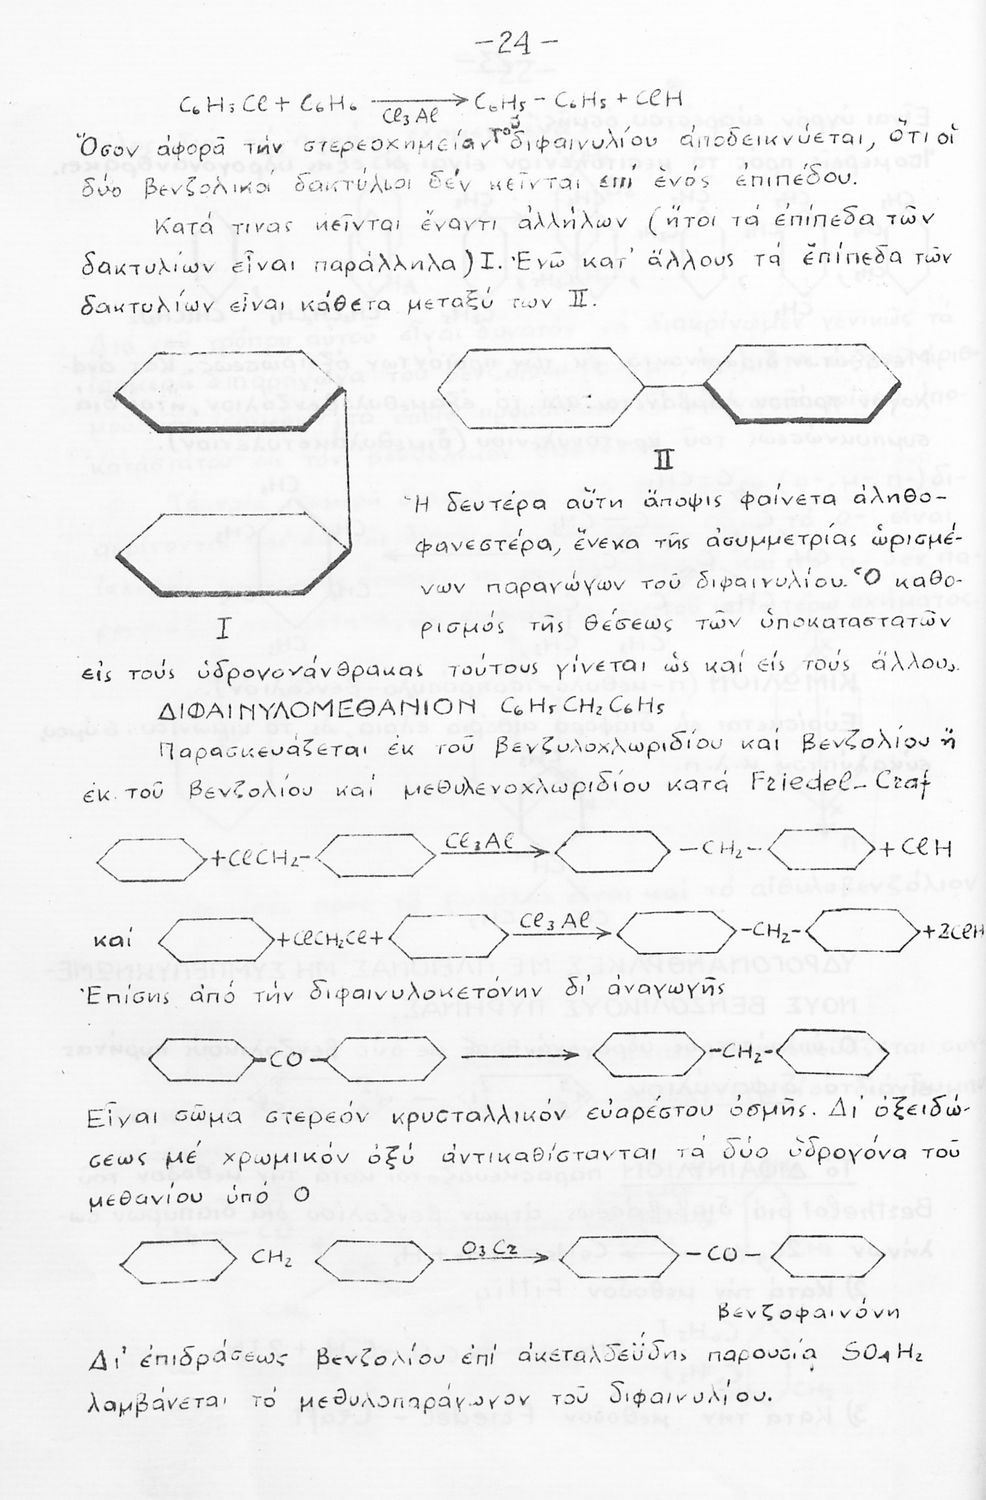 -24-
C₆H₅Cl + C₆H₆ ⟶ C₆H₅ - C₆H₅ + ClH
Cl₃Al
Ὅσον ἀφορᾶ τήν στερεοχημείαν τοῦ διφαινυλίου ἀποδεικνύεται, ὅτι οἱ
δύο βενζολικοί δακτύλιοι δέν κεῖνται ἐπί ἑνός ἐπιπέδου.
Κατά τινας κεῖνται ἔναντι ἀλλήλων (ἤτοι τά ἐπίπεδα τῶν
δακτυλίων εἶναι παράλληλα) I. Ἐνῶ κατ' ἄλλους τά ἐπίπεδα τῶν
δακτυλίων εἶναι κάθετα μεταξύ των II.
II
Ἡ δευτέρα αὕτη ἄποψις φαίνετα ἀληθο-
φανεστέρα, ἕνεκα τῆς ἀσυμμετρίας ὡρισμέ-
νων παραγώγων τοῦ διφαινυλίου. Ὁ καθο-
I
ρισμός τῆς θέσεως τῶν ὑποκαταστατῶν
εἰς τούς ὑδρογονάνθρακας τούτους γίνεται ὡς καί εἰς τούς ἄλλους.
ΔΙΦΑΙΝΥΛΟΜΕΘΑΝΙΟΝ C₆H₅CH₂C₆H₅
Παρασκευάζεται ἐκ τοῦ βενζυλοχλωριδίου καί βενζολίου ἤ
ἐκ τοῦ βενζολίου καί μεθυλενοχλωριδίου κατά Friedel-Craf
+ClCH₂- Cl₃Al ⟶ -CH₂- +ClH
καί +ClCH₂Cl+ Cl₃Al ⟶ -CH₂- +2ClH
Ἐπίσης ἀπό τήν διφαινυλοκετόνην δι' ἀναγωγῆς
-CO- ⟶ -CH₂-
Εἶναι σῶμα στερεόν κρυσταλλικόν εὐαρέστου ὀσμῆς. Δι' ὀξειδώ-
σεως μέ χρωμικόν ὀξύ ἀντικαθίστανται τά δύο ὑδρογόνα τοῦ
μεθανίου ὑπό O
CH₂ O₃Cr ⟶ -CO-
βενζοφαινόνη
Δι' ἐπιδράσεως βενζολίου ἐπί ἀκεταλδεΰδης παρουσία SO₄H₂
λαμβάνεται τό μεθυλοπαράγωγον τοῦ διφαινυλίου.